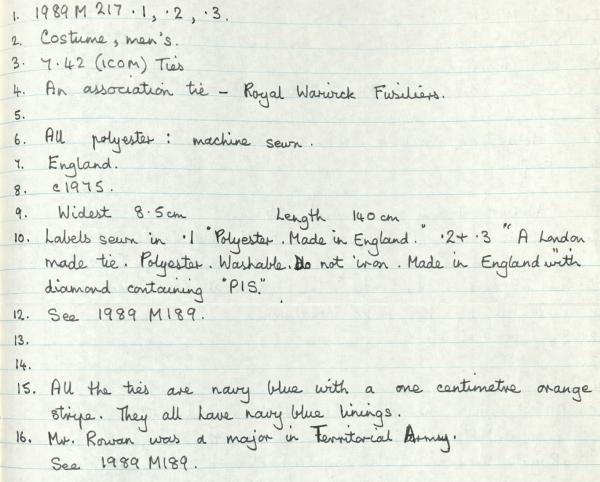 1. 1989 M 217 ·1, ·2, ·3.
2. Costume, men's.
3. 7.42 (ICOM) Ties
4. An association tie - Royal Warwick Fusiliers.
5.
6. All polyester : machine sewn.
7. England.
8. c1975.
9. Widest 8·5cm Length 140 cm
10. Labels sewn in ·1 "Polyester. Made in England." ·2 + ·3 "A London
made tie. Polyester. Washable. Do not iron. Made in England" with
diamond containing "PIS."
12. See 1989 M189.
13.
14.
15. All the ties are navy blue with a one centimetre orange
stripe. They all have navy blue linings.
16. Mr. Rowan was a major in Territorial Army.
See 1989 M189.